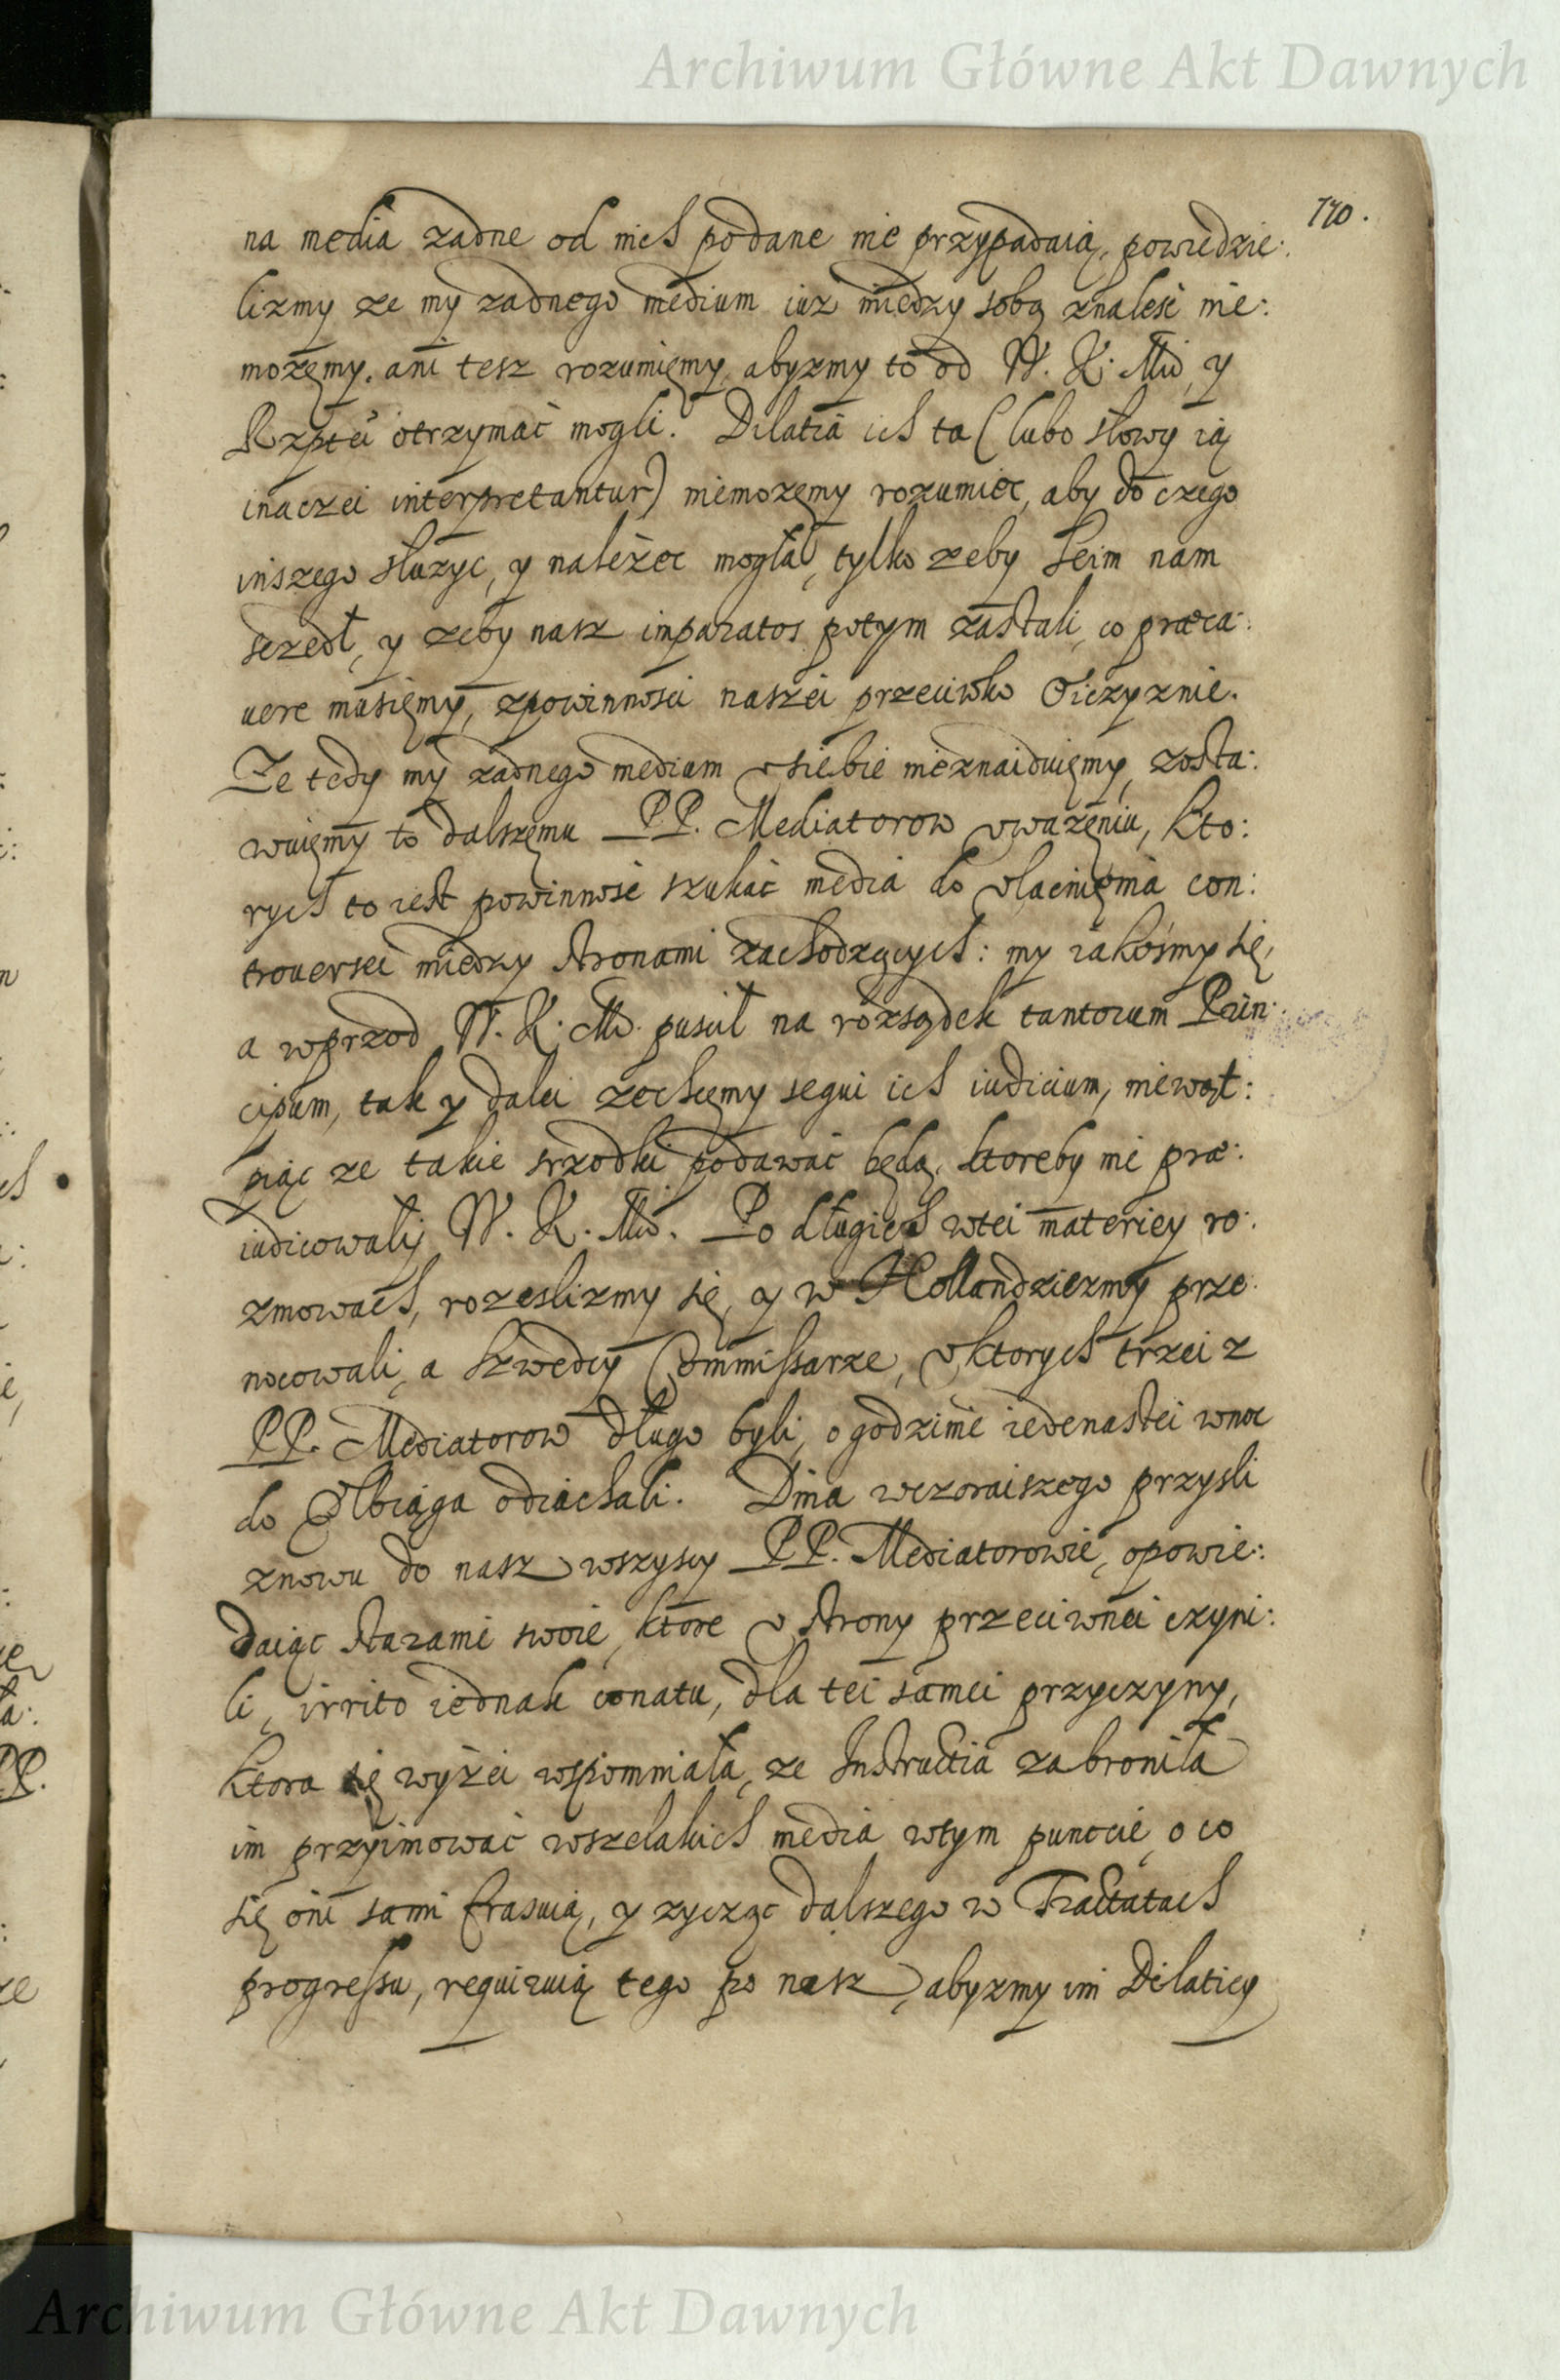 Archiwum Główne Akt Dawnych
170.
na media zadne od nich podane nie przypadaią, powiedzie:
lizmy ze my zadnego medium iuz między sobą znalesć nie:
mozęmy. ani tesz rozumięmy, abyzmy to od W. K. Mći, y
Rzptei otrzymać mogli. Dilatia ich ta (lubo słowy ią
inaczei interpretantur) niemozęmy rozumiec, aby do czego
inszego słuzyc, y nalézec mogła, tylko zeby Seim nam
szedł, y zeby nasz imparatos potym zastali, co præca:
uere musięmy, zpowinnosci naszei przeciwko Oiczyznie.
Ze tedy my zadnego medium v siebie nieznaiduięmy, zosta:
wuięmy to dalszęmu PP. Mediatorow vwazęniu, kto:
rych to iest powinnosć szukać media do vlacnięnia con:
trouersei między stronami zachodzących: my iakośmy się,
a wprzod W. K. Mć. puscił na rozsądek tantorum Prin:
cipum, tak y dalei zechcęmy sequi ich iudicium, niewąt:
piąc ze takie srzodki podawać będą, ktoreby nie præ:
iudicowały W. K. Mći. Po długich wtei materiey ro:
zmowach, rozeslizmy się, y w Hollandziezmy prze:
nocowali, a Szwedcy Commissarze, v ktorych trzei z
PP. Mediatorow długo byli, o godzinie iedenastei wnoc
do Elbiąga odiachali. Dnia wczoraiszego przysli
znowu do nasz wszyscy PP. Mediatorowie, opowie:
daiąc starania swoie, ktore v strony przeciwnei czyni:
li, irrito iednak conatu, dla tei samei przyczyny,
ktora się wyżei wspomniała, ze Instructia zabroniła
im przyimować wszelakich media wtym puncie, o co
się oni sami frasuią, y zycząc dalszego w Tractatach
progressu, requiruią tego po nasz, abyzmy im Dilaticy
Archiwum Główne Akt Dawnych